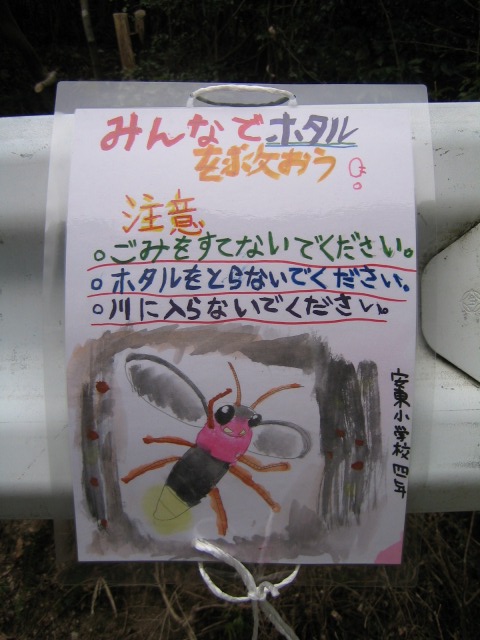 みんなでホタル
を救おう!!
注意
。ごみをすてないでください。
。ホタルをとらないでください。
。川に入らないでください。
小学校四年